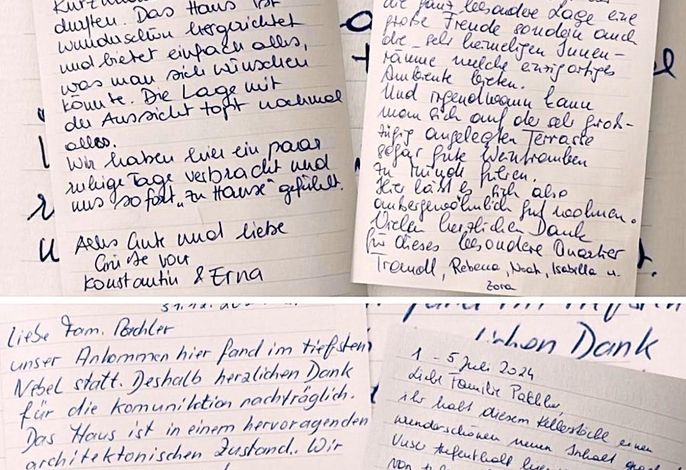 durften. Das Haus ist
wunderschön hergerichtet
und bietet einfach alles,
was man sich wünschen
könnte. Die Lage mit
der Aussicht topt nochmal
alles.
Wir haben hier ein paar
ruhige Tage verbracht und
uns sofort "zu Hause" gefühlt.
Alles Gute und liebe
Grüße von
Konstantin & Erna
die ganz besondere Lage eine
große Freude sondern auch
die sehr heimeligen Innen-
räume welche einzigartiges
Ambiente bieten.
Und irgendwann kann
man sich auf der groß-
zügig angelegten Terrasse
sogar gute Weintrauben
zu Munde führen.
Hier lässt es sich also
außergewöhnlich gut wohnen.
Vielen herzlichen Dank
für dieses besondere Quartier
Noah, Isabella u.
Zora
liebe Fam.
unser Ankommen hier fand im tiefsten
Nebel statt. Deshalb herzlichen Dank
für die komuniktion nachträglich.
Das Haus ist in einem hervoragenden
architektonischen Zustand. Wir
lichen Dank
1 - 5 Juli 2024
Liebe Familie
ihr habt diesem Kellerstöckl einen
wunderschönen neuen Inhalt
Unser Aufenthalt hier